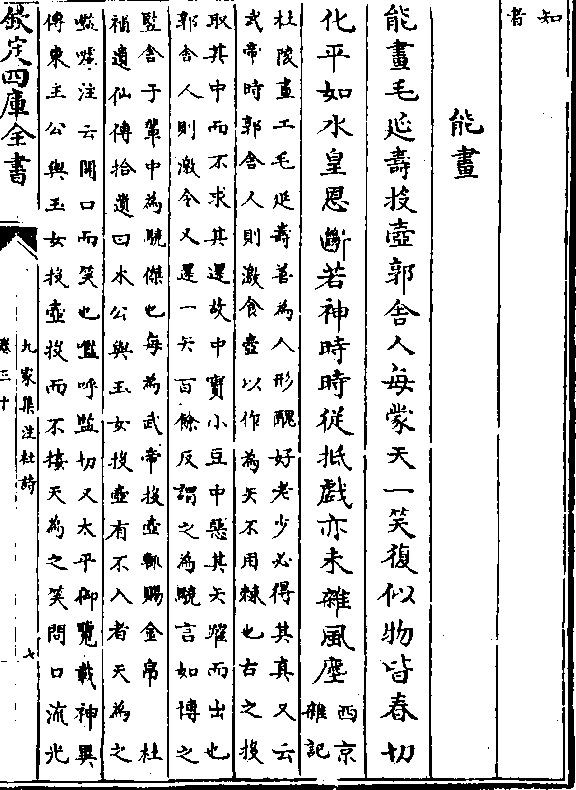 知
者
能畫
能畫毛延壽投壺郭舍人每蒙天一笑復似物皆春切
化平如水皇恩斷若神時時從抵戲亦未雜風塵西京
雜記
杜陵畫工毛延壽善為人形醜好老少必得其真又云
武帝時郭舍人則激食壺以作為矢不用棘也古之投
取其中而不求其還故中實小豆中惡其矢躍而出也
郭舍人則激令又還一矢百餘反謂之為驍言如博之
監舍于輩中為驍傑也每為武帝投壺輒賜金帛 杜
補遺仙傳拾遺曰木公與玉女投壺有不入者天為之
嚂嘘注云開口而笑也嚂呼監切又太平御覽載神異
傳東王公與玉女投壺投而不接天為之笑問口流光
欽定四庫全書
九家集注杜詩
卷三十
七